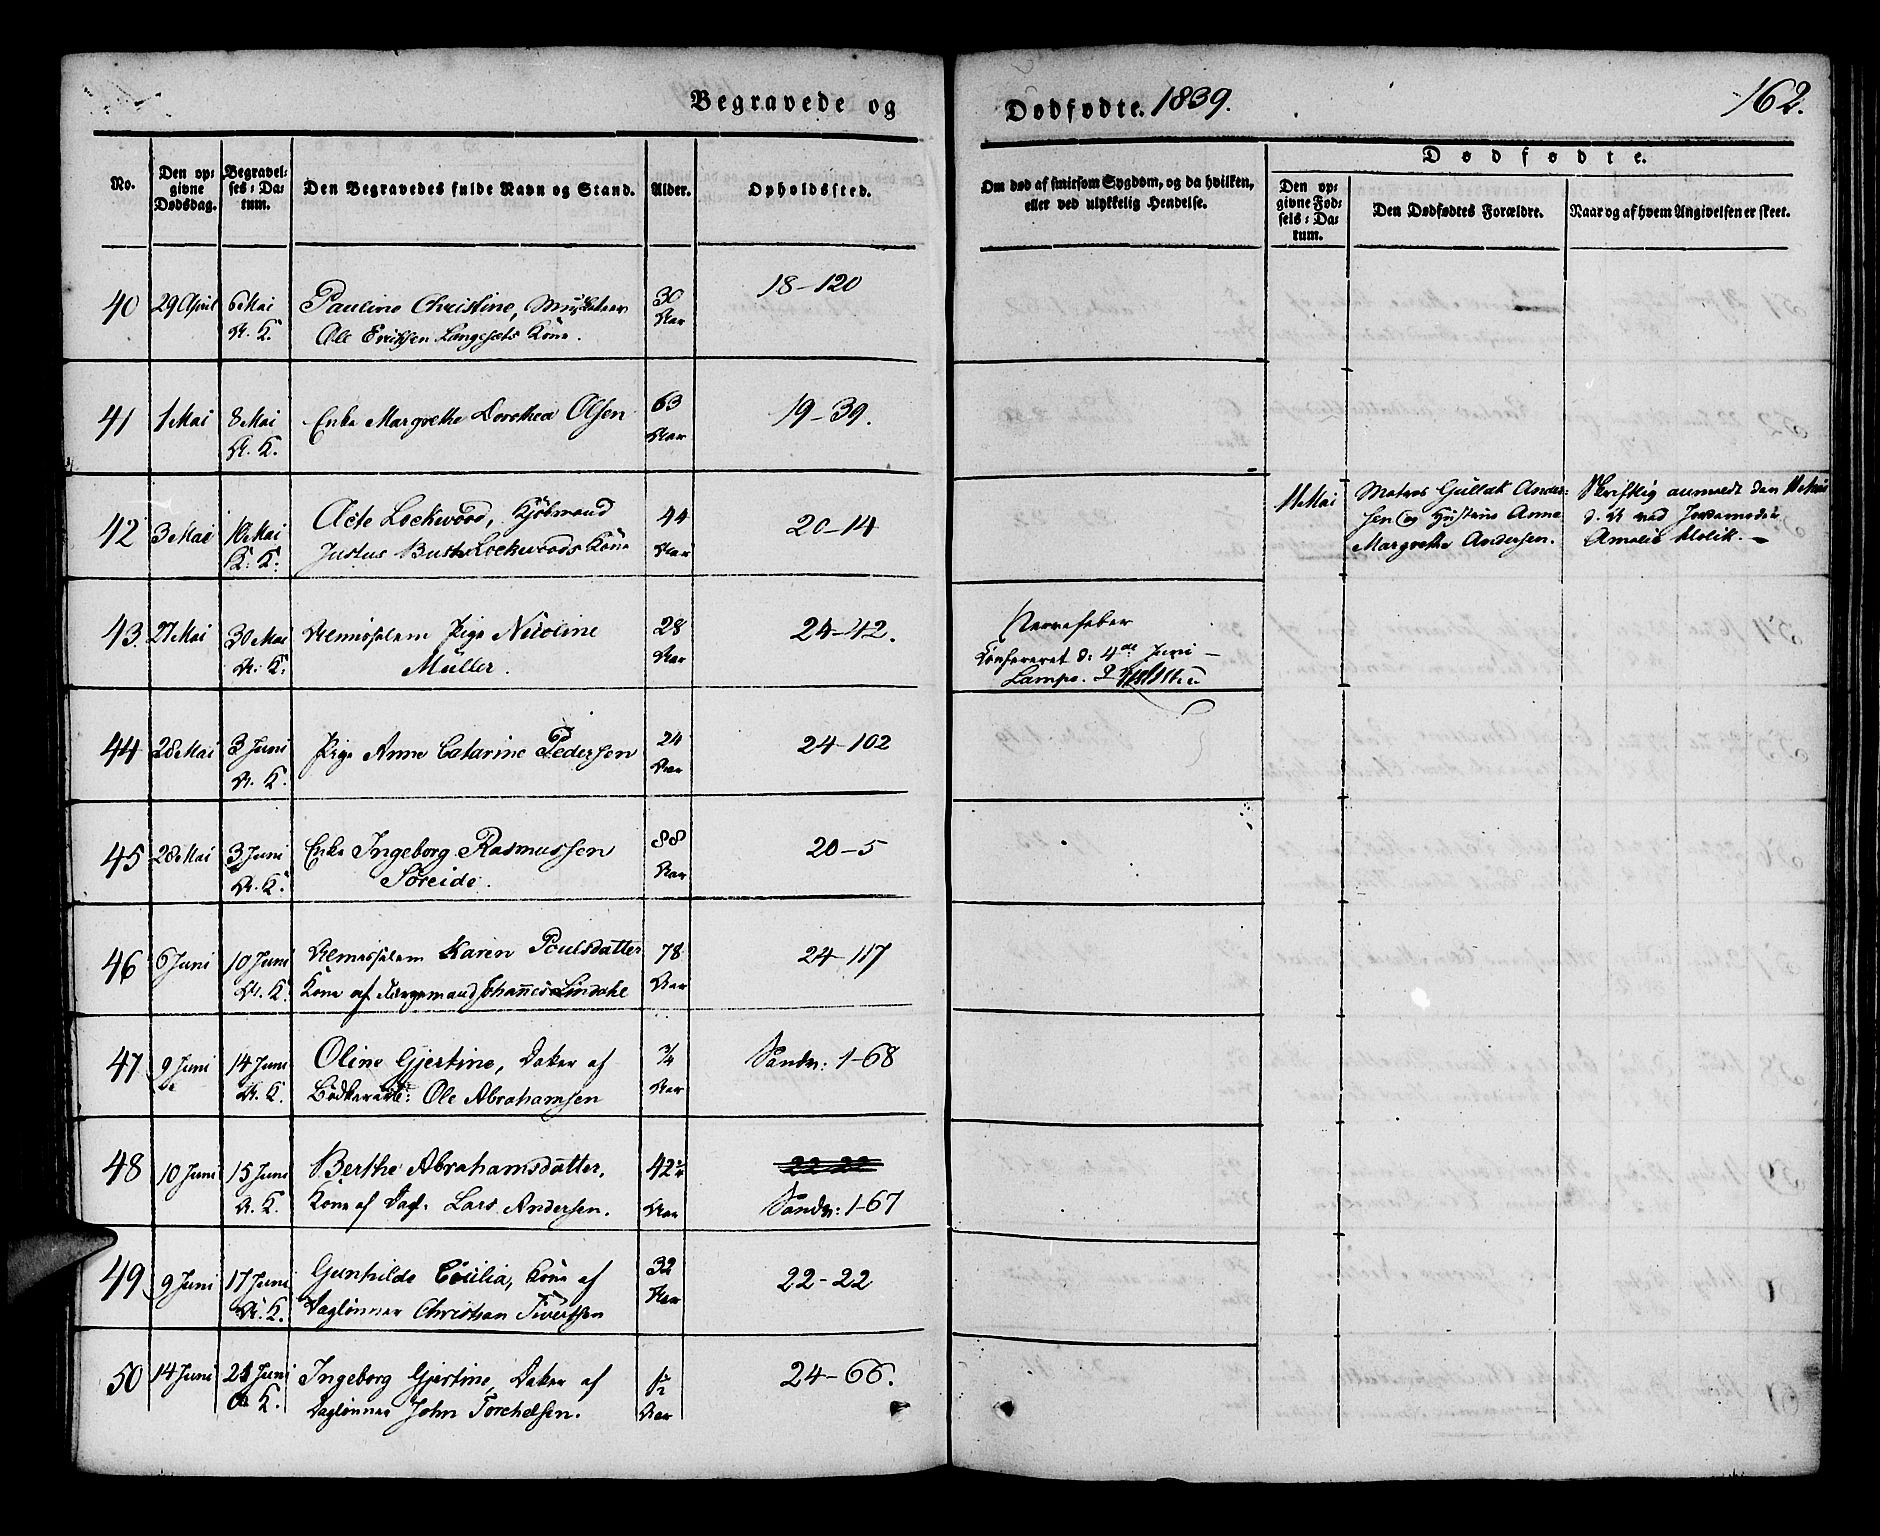 Begravede og
Dødfødte. 1839.
162.
No.
Den opgivne Dødsdag.
Begravelses-Datum.
Den Begravedes fulde Navn og Stand.
Alder.
Opholdssted.
Om død af smitsom Sygdom, og da hvilken, eller ved ulykkelig Hendelse.
Dødfødte.
Den opgivne Fødsels-Datum.
Den Dødfødtes Forældre.
Naar og af hvem Angivelsen er skeet.
40 29 April 6 Mai Pauline Christine, Musketeer 30 18-120
K. Ole Eriksen Langesæts Kone. Aar
41 1 Mai 8 Mai Enke Margrethe Dorothea Olsen 63 19-39.
K. Aar
42 3 Mai 10 Mai Acte Lockwood, Kjøbmand 44 20-14
K. K. Justus Lockwoods Kone Aar
11 Mai Matros Gullak Andersen og Hustrue Anne Margrethe Andersen.
Skriftlig anmeldt den 11 Mai d. A. ved Jordemoder Amalie
43. 27 Mai 30 Mai Almisselem Pige Nicoline 28 24-42. Nervefeber
K. Müller. Aar Confereret d: 4de Juni
44 28 Mai 3 Juni Pige Anne Catarine Pedersen 24 24-102
K. Aar
45 28 Mai 3 Juni Enke Ingeborg Rasmussen 88 20-5
K. Søreide. Aar
46 6 Juni 10 Juni Almisselem Karen Poulsdatter 78 24-117
K. Kone af Johannes Lindahl Aar
47 9 Juni 14 Juni Oline Gjertine, Datter af 3/4 Sandv: 1-68
K. Ole Abrahamsen Aar
48 10 Juni 15 Juni Berthe Abrahamsdatter, 42 22-22
K. Kone af Dagl: Lars Andersen. Aar Sandv: 1-67
49 9 Juni 17 Juni Gunhilde Cecilia, Kone af 32 22-22
K. Daglønner Christian Sivertsen Aar
50 14 Juni 21 Juni Ingeborg Gjertine, Datter af 1½ 24-66.
K. Daglønner John Torchelsen. Aar